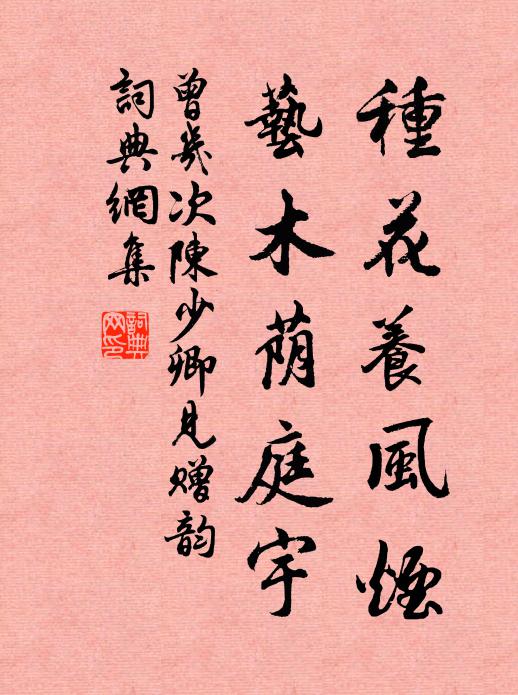 種花養風煙
藝木荫庭宇
曾幾次陳少卿見贈韵
詞典網集
詞典網印